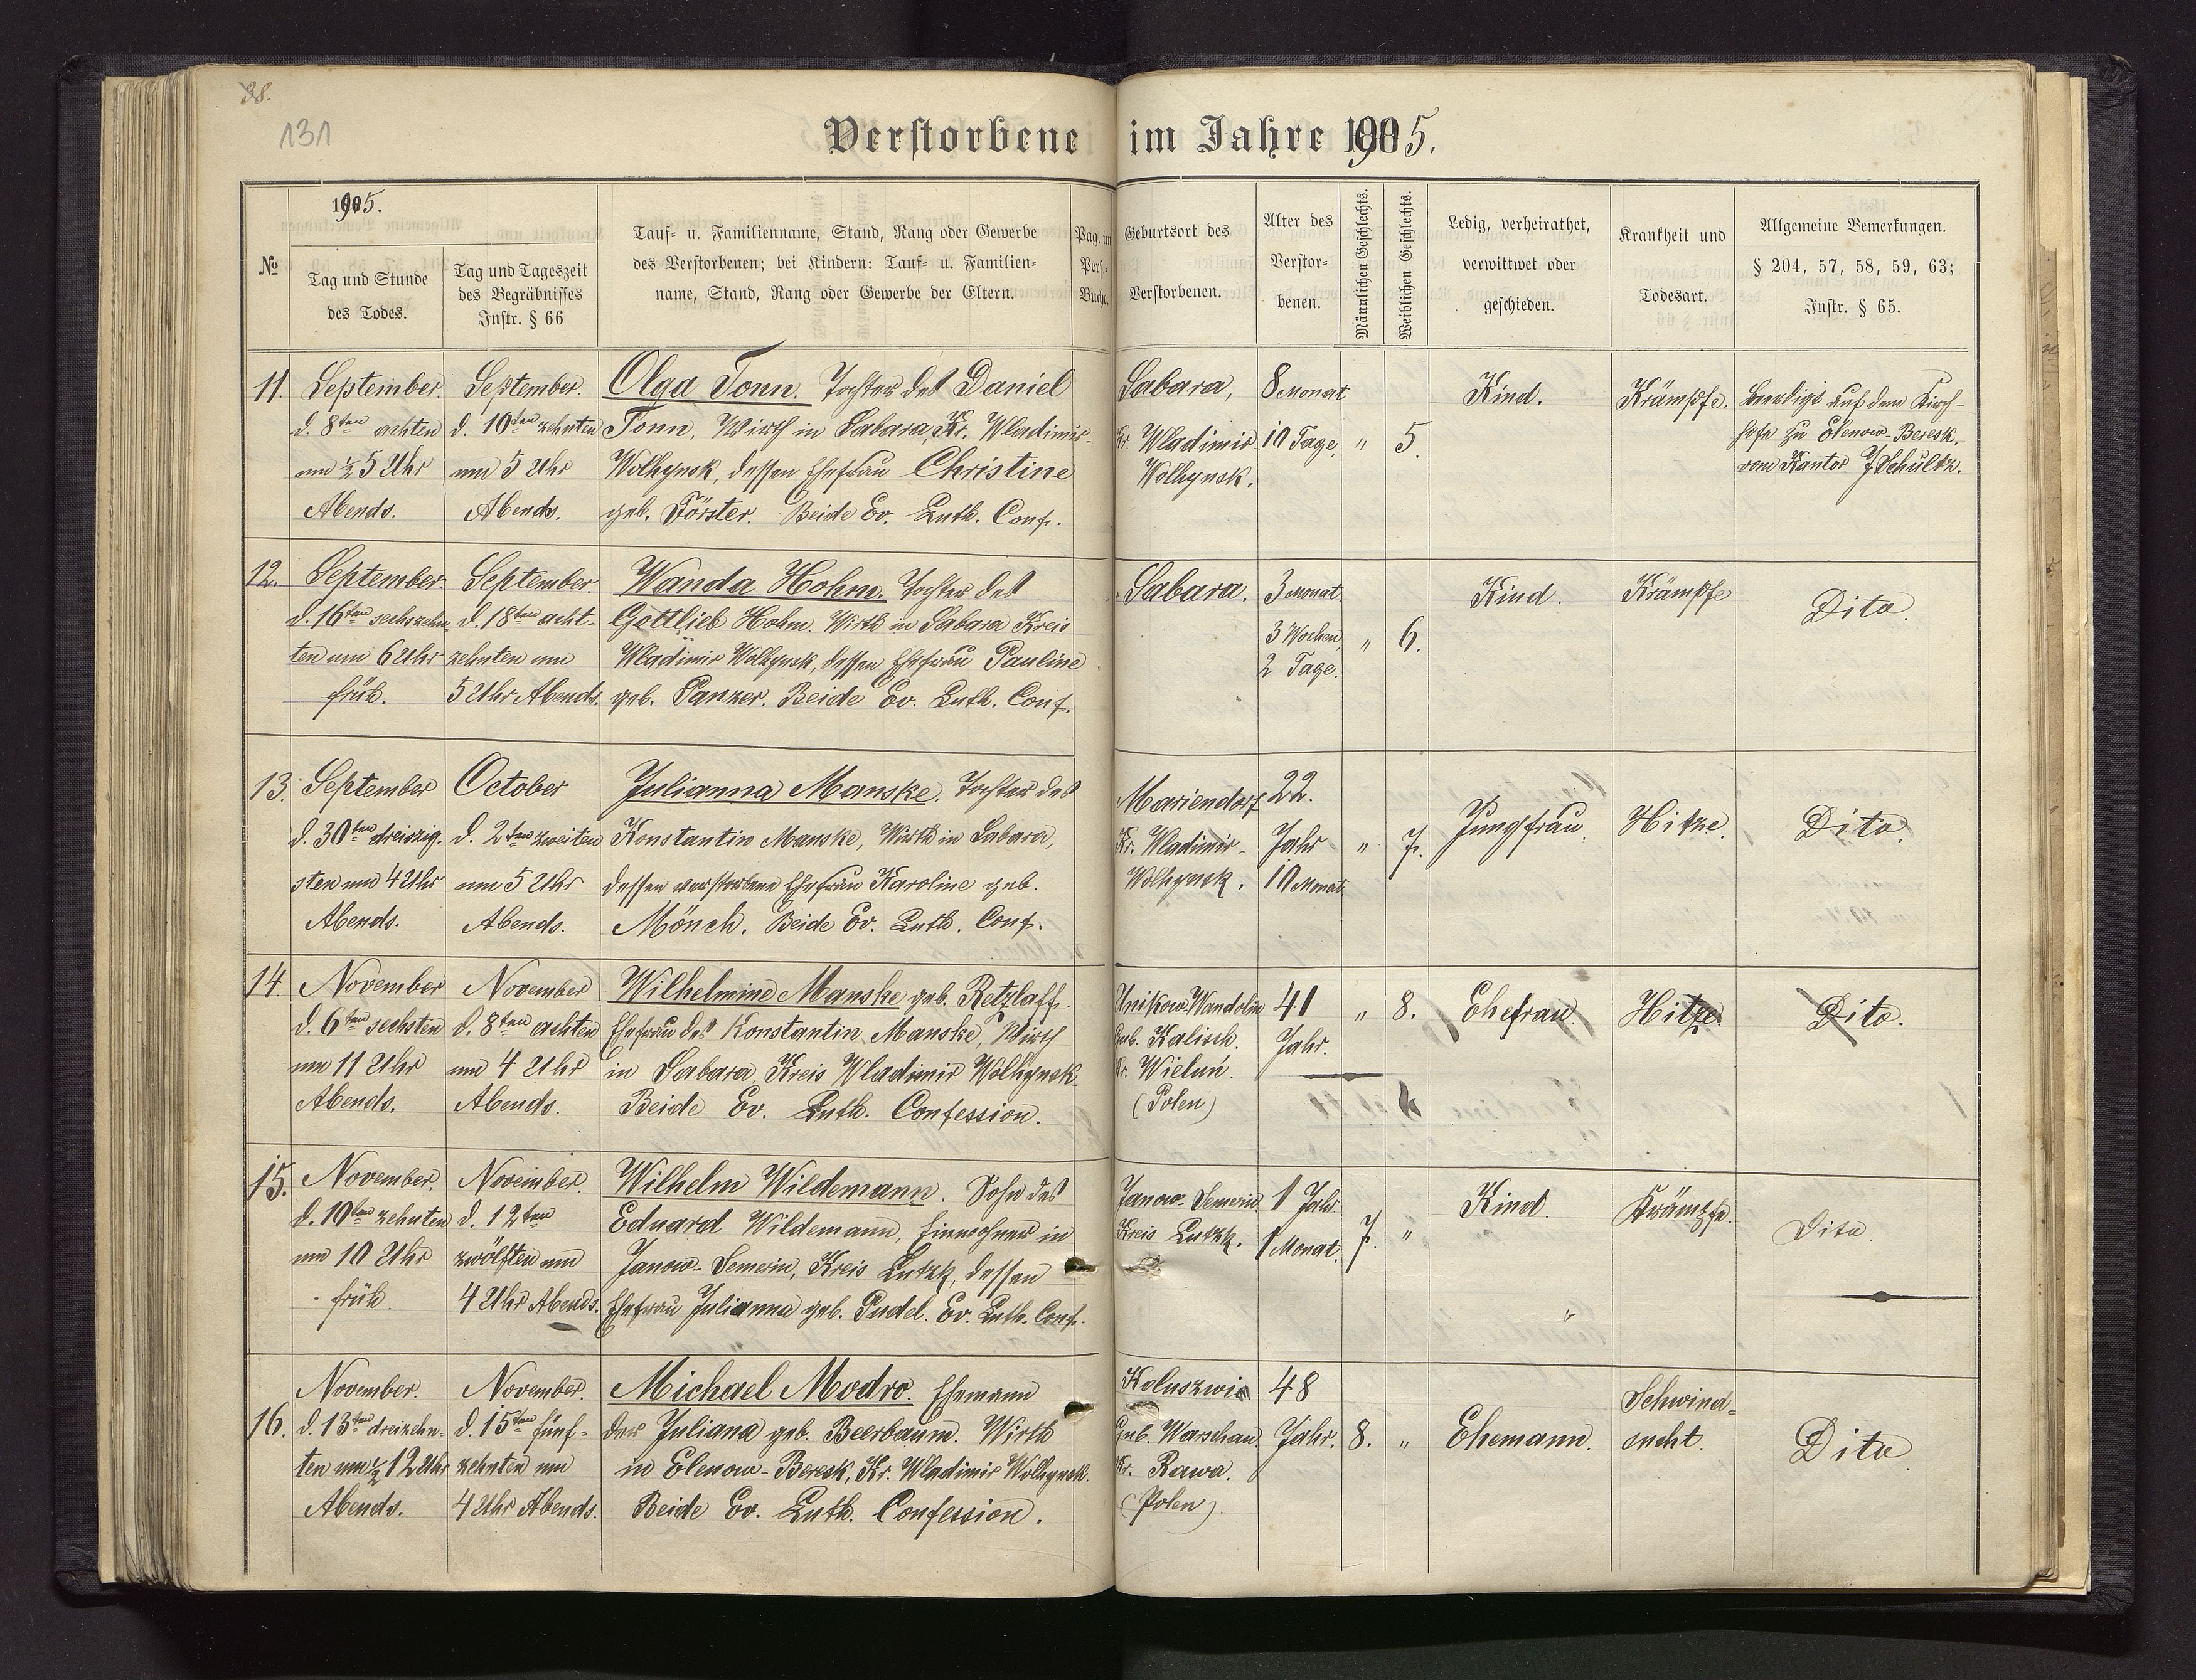 38.
131
Verstorbene im Jahre 1905.
№
1905.
Tag und Stunde
des Todes.
Tag und Tageszeit
des Begräbnisses
Instr. § 66
Tauf- u. Familienname, Stand, Rang oder Gewerbe
des Verstorbenen; bei Kindern: Tauf- u. Familien-
name, Stand, Rang oder Gewerbe der Eltern.
Pag. im
Pers.-
Buche.
Geburtsort des
Verstorbenen.
Alter des
Verstor-
benen.
Männlichen Geschlechts.
Weiblichen Geschlechts.
Ledig, verheirathet,
verwittwet oder
geschieden.
Krankheit und
Todesart.
Allgemeine Bemerkungen.
§ 204, 57, 58, 59, 63;
Instr. § 65.
11.
September.
d. 8ten achten
um ½ 5 Uhr
Abends.
September.
d. 10ten zehnten
um 5 Uhr
Abends.
Olga Tonn. Tochter des Daniel
Tonn, Wirth in Sabara, Kr. Wladimir-
Wolhynsk, dessen Ehefrau Christine
geb. Förster. Beide Ev. Luth. Conf.
Sabara,
Kr. Wladimir
Wolhynsk.
8 Monat
10 Tage.
„
5.
Kind.
Krämpfe.
Beerdigt auf dem Kirch-
hofe zu Elenow-Beresk.
vom Kantor J. Schultz.
12.
September.
d. 16ten sechszehn-
ten um 6 Uhr
früh.
September.
d. 18ten acht-
zehnten um
5 Uhr Abends.
Wanda Hohm. Tochter des
Gottlieb Hohm. Wirth in Sabara Kreis
Wladimir Wolhynsk, dessen Ehefrau Pauline
geb. Panzer. Beide Ev. Luth. Conf.
Sabara.
3 Monat.
3 Wochen,
2 Tage.
„
6.
Kind.
Krämpfe
Dito.
13.
September
d. 30ten dreiszig-
sten um 4 Uhr
Abends.
October
d. 2ten zweiten
um 5 Uhr
Abends.
Julianna Manske. Tochter des
Konstantin Manske, Wirth in Sabara,
dessen verstorbene Ehefrau Karoline geb.
Mönch. Beide Ev. Luth. Conf.
Mariendorf
Kr. Wladimir-
Wolhynsk.
22.
Jahr
10 Monat.
„
7.
Jungfrau.
Hitze.
Dito.
14.
November
d. 6ten sechsten
um 11 Uhr
Abends.
November
d. 8ten achten
um 4 Uhr
Abends.
Wilhelmine Manske geb. Retzlaff.
Ehefrau des Konstantin Manske, Wirth
in Sabara, Kreis Wladimir Wolhynsk.
Beide Ev. Luth. Confession.
Gub. Kalisch.
Kr. Wieluń.
(Polen)
41
Jahr.
„
8.
Ehefrau.
Hitze.
Dito.
15.
November.
d. 10ten zehnten
um 10 Uhr
früh.
November.
d. 12ten
zwölften um
4 Uhr Abends.
Wilhelm Wildemann. Sohn des
Eduard Wildemann, Einwohner in
Janow-Semerin, Kreis Lutzk, dessen
Ehefrau Julianna geb. Pudel. Ev. Luth. Conf.
Janow-Semerin.
Kreis Lutzk.
1 Jahr.
1 Monat.
7.
„
Kind.
Krämpfe.
Dito.
16.
November.
d. 13ten dreizehn-
ten um ½ 12 Uhr
Abends.
November.
d. 15ten fünf-
zehnten um
4 Uhr Abends.
Michael Modro. Ehemann
der Juliana geb. Beerbaum. Wirth
in Elenow-Beresk, Kr. Wladimir Wolhynsk.
Beide Ev. Luth. Confession.
Gub. Warschau.
Kr. Rawa.
(Polen).
48
Jahr.
8.
„
Ehemann.
Schwind-
sucht.
Dito.